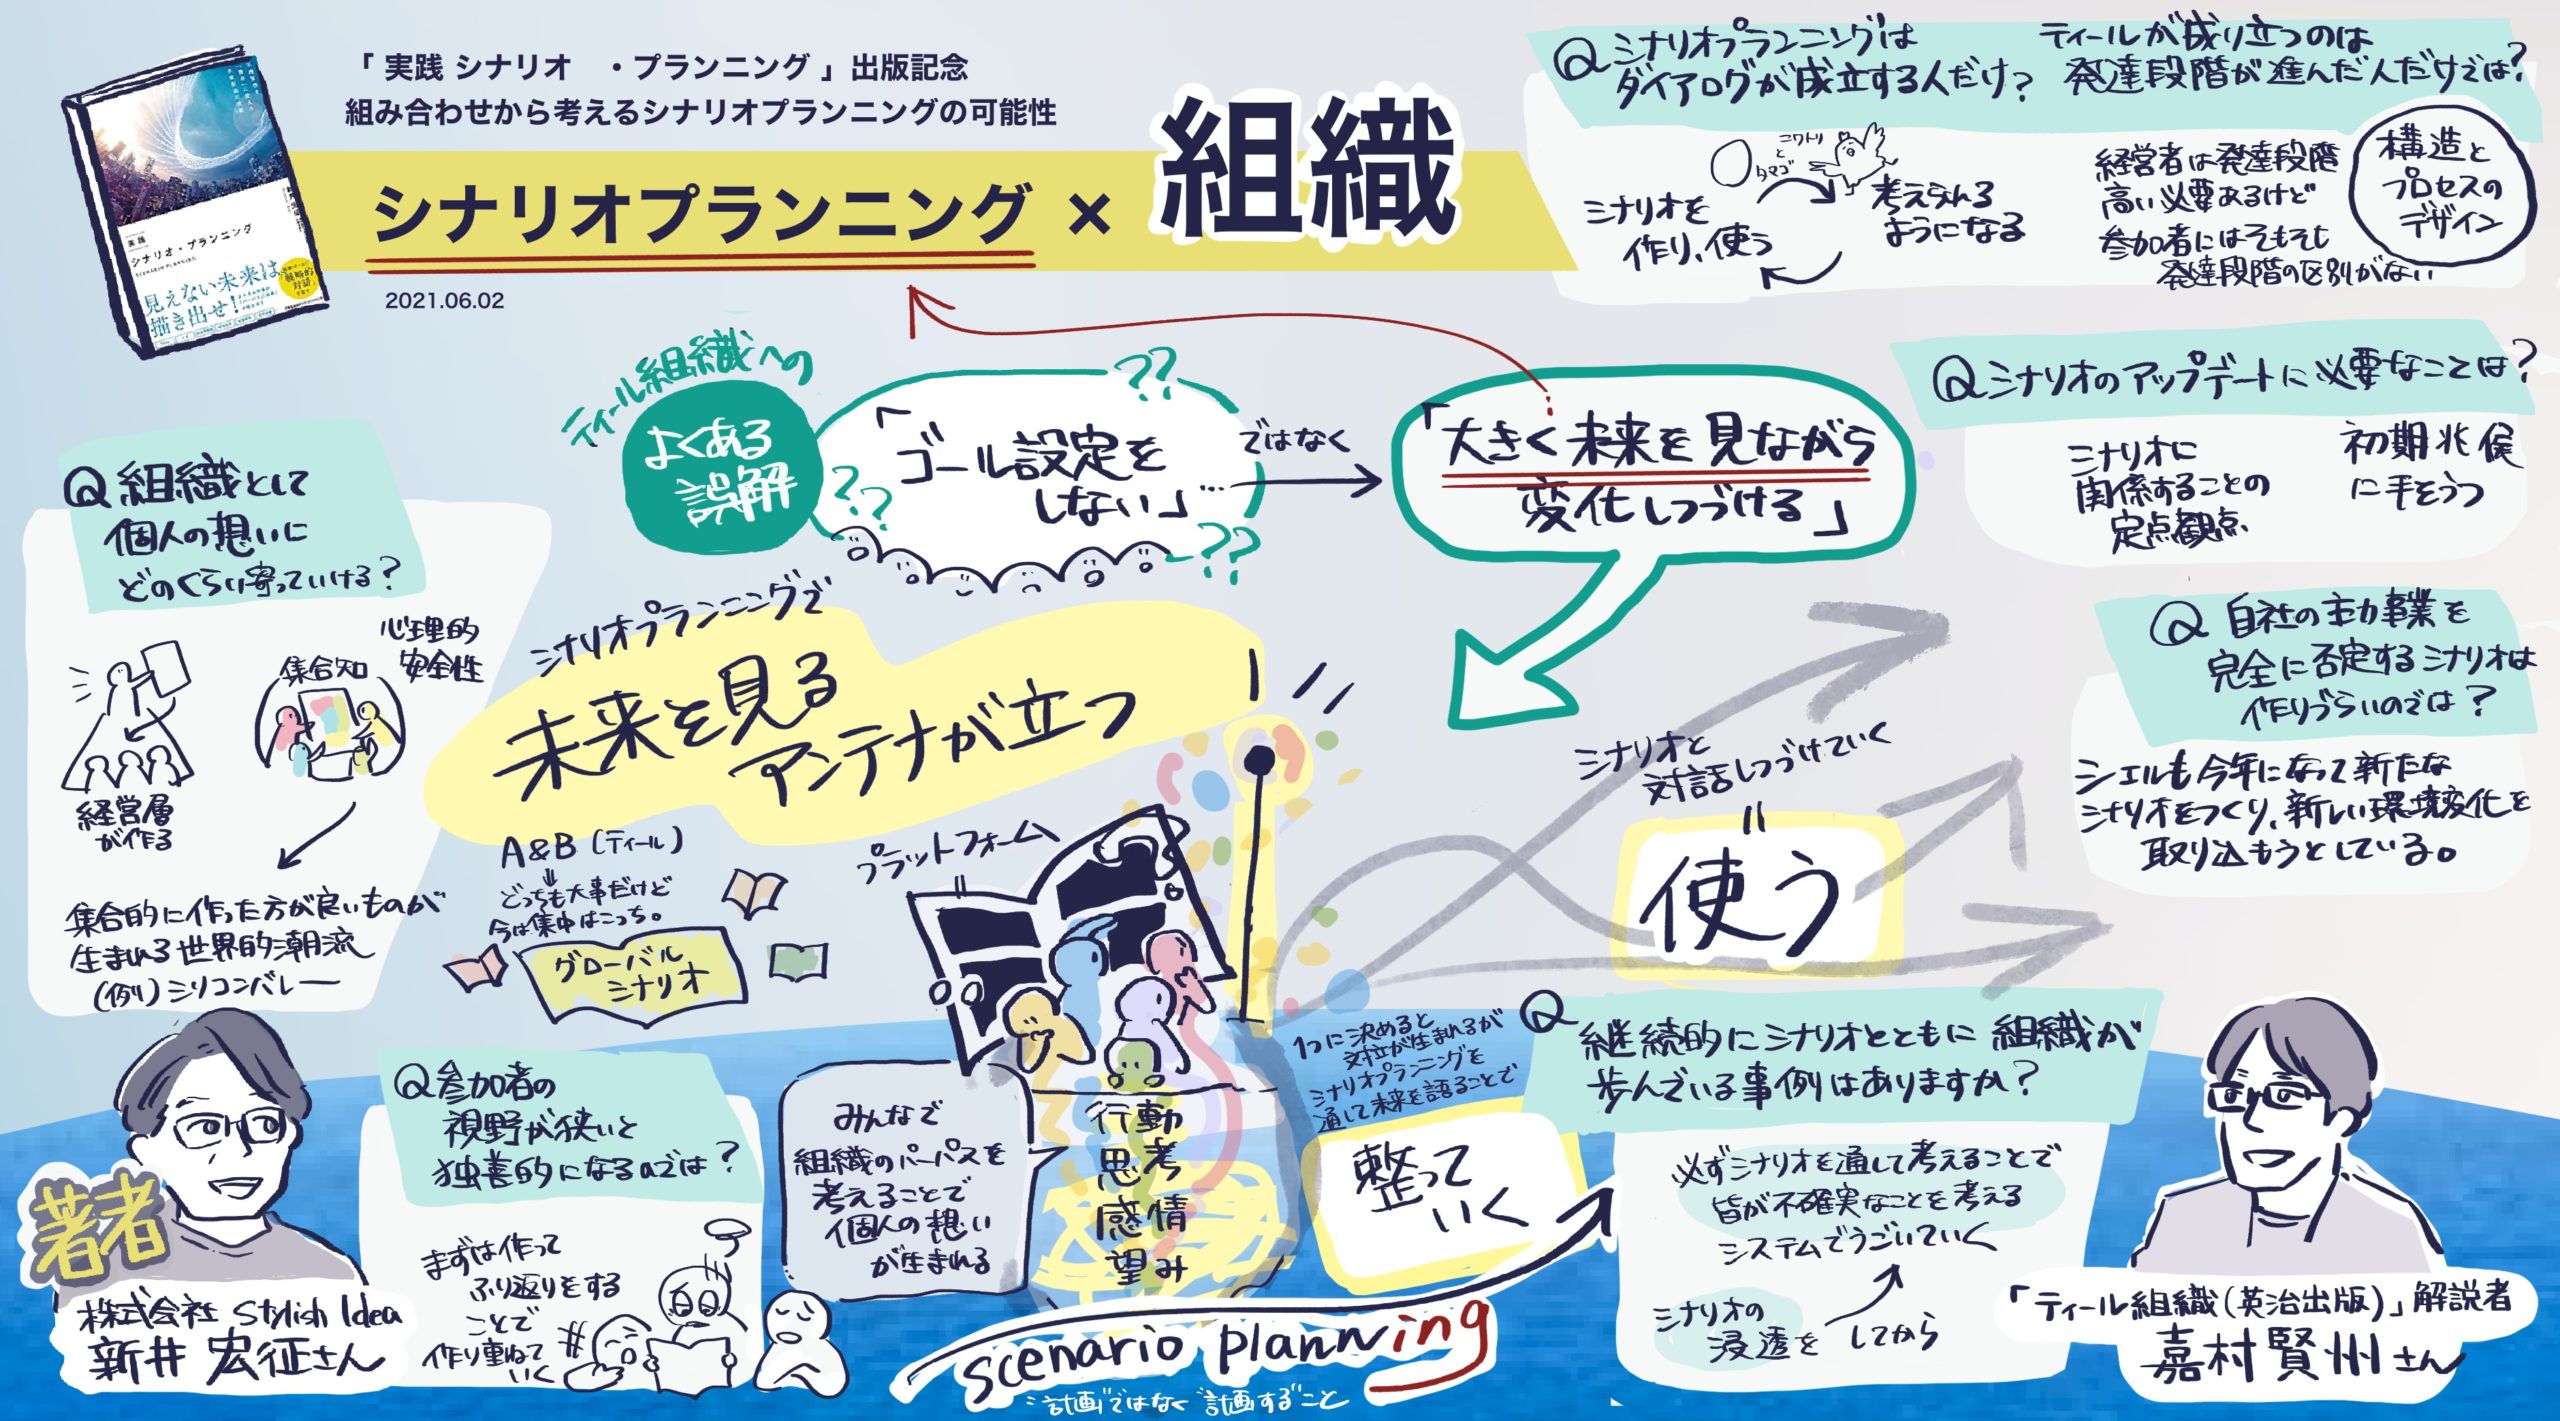 「 実践 シナリオ ・プランニング 」出版記念
組み合わせから考えるシナリオプランニングの可能性
シナリオプランニング × 組織
2021.06.02
実践
シナリオ・プランニング
SCENARIO PLANNING
見えない未来は
描き出せ!
戦略的
対話
Q シナリオプランニングは
ダイアログが成立する人だけ?
ティールが成り立つのは
発達段階が進んだ人だけでは?
ニワトリ
と
タマゴ
シナリオを
作り、使う
考えられる
ようになる
経営者は発達段階
高い必要あるけど
参加者にはそもそも
発達段階の区別がない
構造と
プロセスの
デザイン
ティール組織への
よくある
誤解
「ゴール設定を
しない」…
??
??
??
ではなく
「大きく未来を見ながら
変化しつづける」
Q シナリオのアップデートに必要なことは?
シナリオに
関係することの
定点観点
初期兆候
に手をうつ
Q 組織として
個人の想いに
どのくらい寄っていける?
心理的
安全性
集合知
経営層
が作る
集合的に作った方が良いものが
生まれる世界的潮流
(例)シリコンバレー
シナリオプランニングで
未来を見る
アンテナが立つ
A&B(ティール)
どっちも大事だけど
今は集中はこっち。
グローバル
シナリオ
プラットフォーム
シナリオと
対話しつづけていく
使う
Q 自社の主力事業を
完全に否定するシナリオは
作りづらいのでは?
シェルも今年になって新たな
シナリオをつくり、新しい環境変化を
取り込もうとしている。
Q 参加者の
視野が狭いと
独善的になるのでは?
まずは作って
ふり返りをする
ことで
作り重ねて
いく
みんなで
組織のパーパスを
考えることで
個人の想い
が生まれる
行動
思考
感情
望み
1つに決めると
対立が生まれるが
シナリオプランニングを
通して未来を語ることで
整って
いく
Q 継続的にシナリオとともに組織が
歩んでいる事例はありますか?
必ずシナリオを通して考えることで
皆が不確実なことを考える
システムでうごいていく
シナリオの
浸透を
してから
scenario planning
"計画"ではなく"計画する"こと
著者
株式会社 Stylish Idea
新井 宏征さん
「ティール組織(英治出版)」解説者
嘉村賢州さん